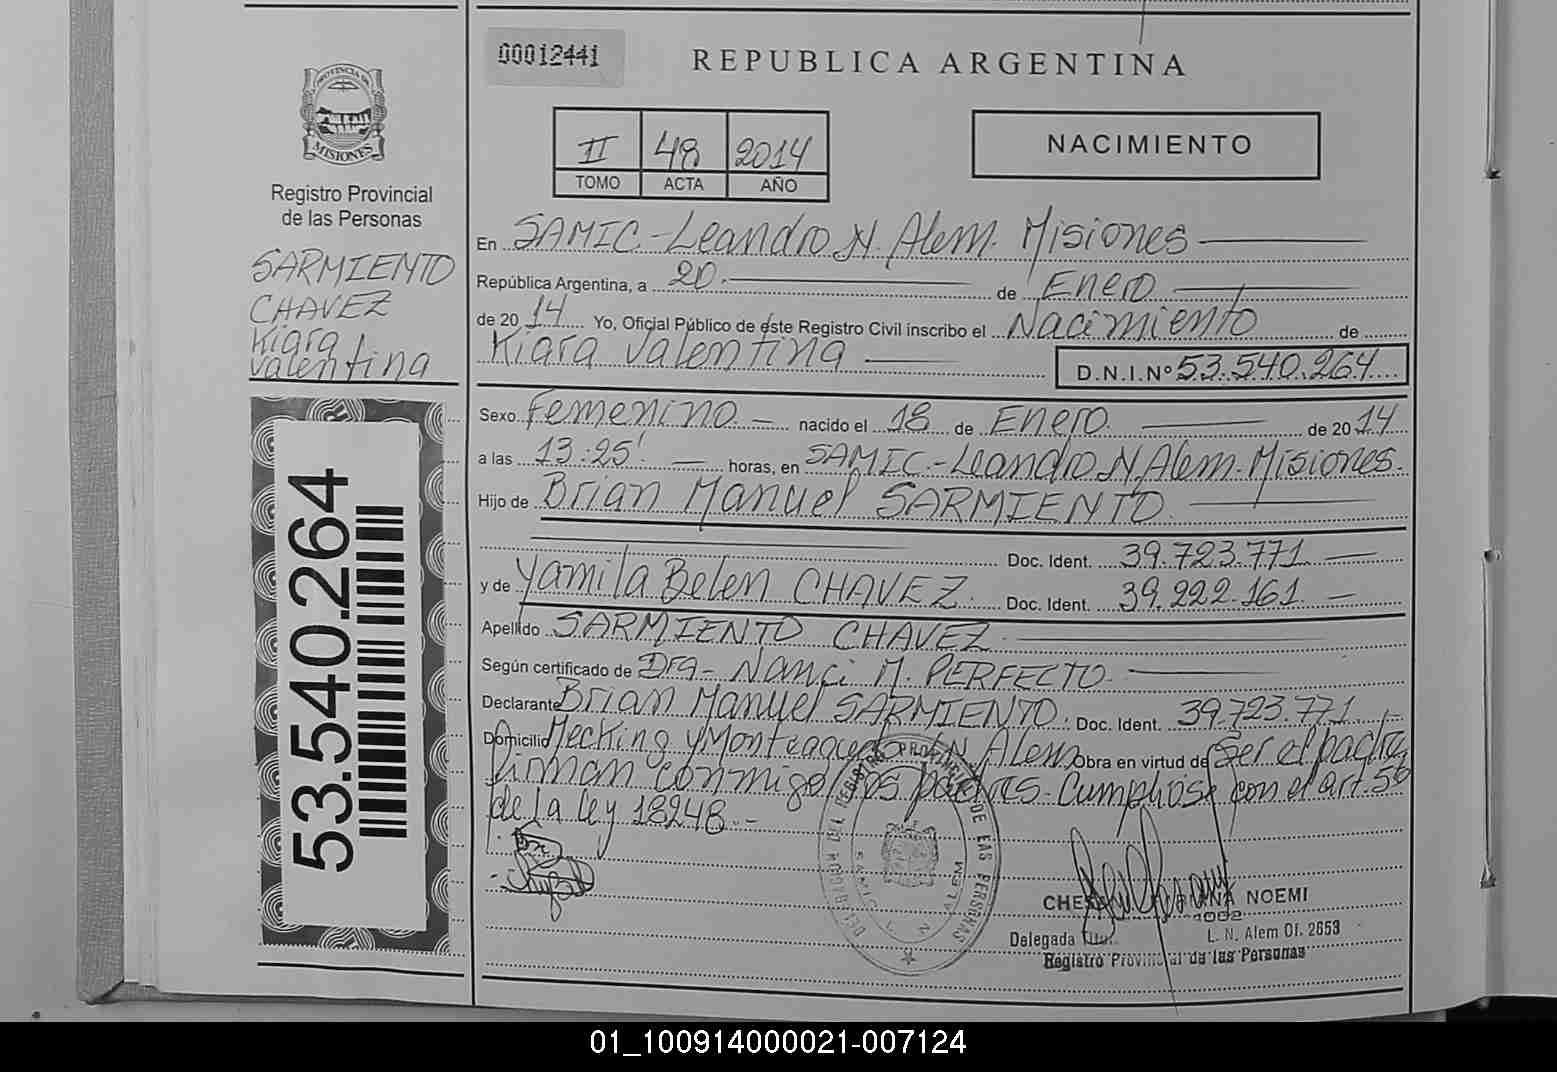 00012441
REPUBLICA ARGENTINA
PROVINCIA DE
MISIONES
Registro Provincial
de las Personas
SARMIENTO
CHAVEZ
Kiara
Valentina
53.540.264
II 48 2014
TOMO ACTA AÑO
NACIMIENTO
En SAMIC-Leandro N. Alem. Misiones
República Argentina, a 20 de Enero
de 2014 Yo, Oficial Público de éste Registro Civil inscribo el Nacimiento de
Kiara Valentina D.N.I.Nº 53.540.264
Sexo Femenino.- nacido el 18 de Enero. de 2014
a las 13:25' horas, en SAMIC.-Leandro N. Alem.-Misiones.
Hijo de Brian Manuel SARMIENTO.
Doc. Ident. 39.723.771
y de Yamila Belen CHAVEZ. Doc. Ident. 39.222.161
Apellido SARMIENTO CHAVEZ
Según certificado de Dra- Nanci M. PERFECTO.
Declarante Brian Manuel SARMIENTO. Doc. Ident. 39.723.771
Domicilio Mecking y Monteagudo LN Alem Obra en virtud de Ser el padre,
firman conmigo los padres. Cumpliose con el art. 5º
de la Ley 18248.-
DEL REGISTRO PROVINCIAL DE LAS PERSONAS
SAMIC L N ALEM
NOEMI
Delegada Titul.
L. N. Alem Of. 2653
Registro Provincial de las Personas
01_100914000021-007124